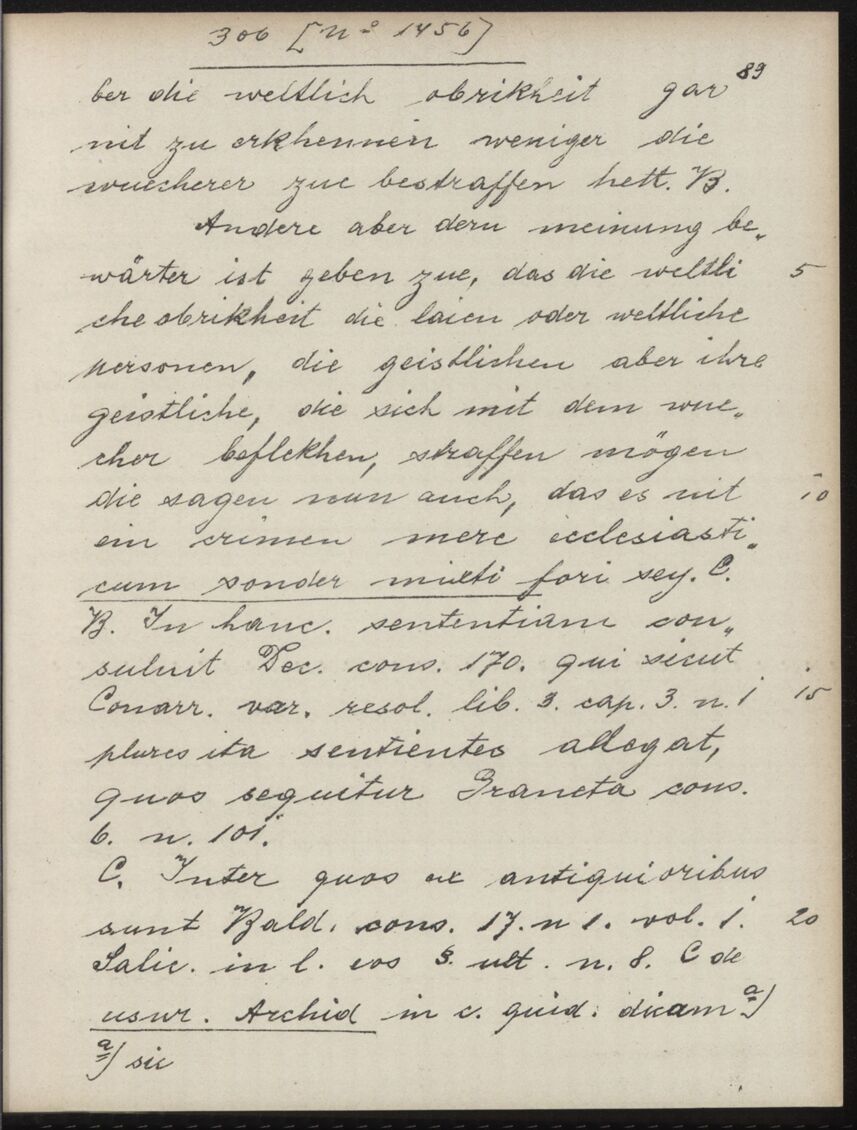 306 [Nº 1456]
89
ber die weltlich obrikheit gar
nit zu erkhennen weniger die
wuecherer zue bestraffen hett. B.
Andere aber dern meinung be„
wärter ist geben zue, das die weltli 5
che obrikheit die laien oder weltliche
personen, die geistlichen aber ihre
geistliche, die sich mit dem wue„
cher beflekhen, straffen mögen
die sagen nun auch, das es nit 10
ein crimen mere ecclesiasti„
cum sonder mixti fori sey. C.
B. In hanc. sententiam con„
suluit Dec. cons. 170. qui sicut
Conarr. var. resol. lib. 3. cap. 3. n. 1 15
plures ita sentientes allegat,
quos sequitur Graneta cons.
6. n. 101.
C. Inter quos ex antiquioribus
sunt Bald. cons. 17. n 1. vol. 1. 20
Salic. in l. eos §. ult. n. 8. C de
usur. Archid in c. quid. dicam a)
a) sic